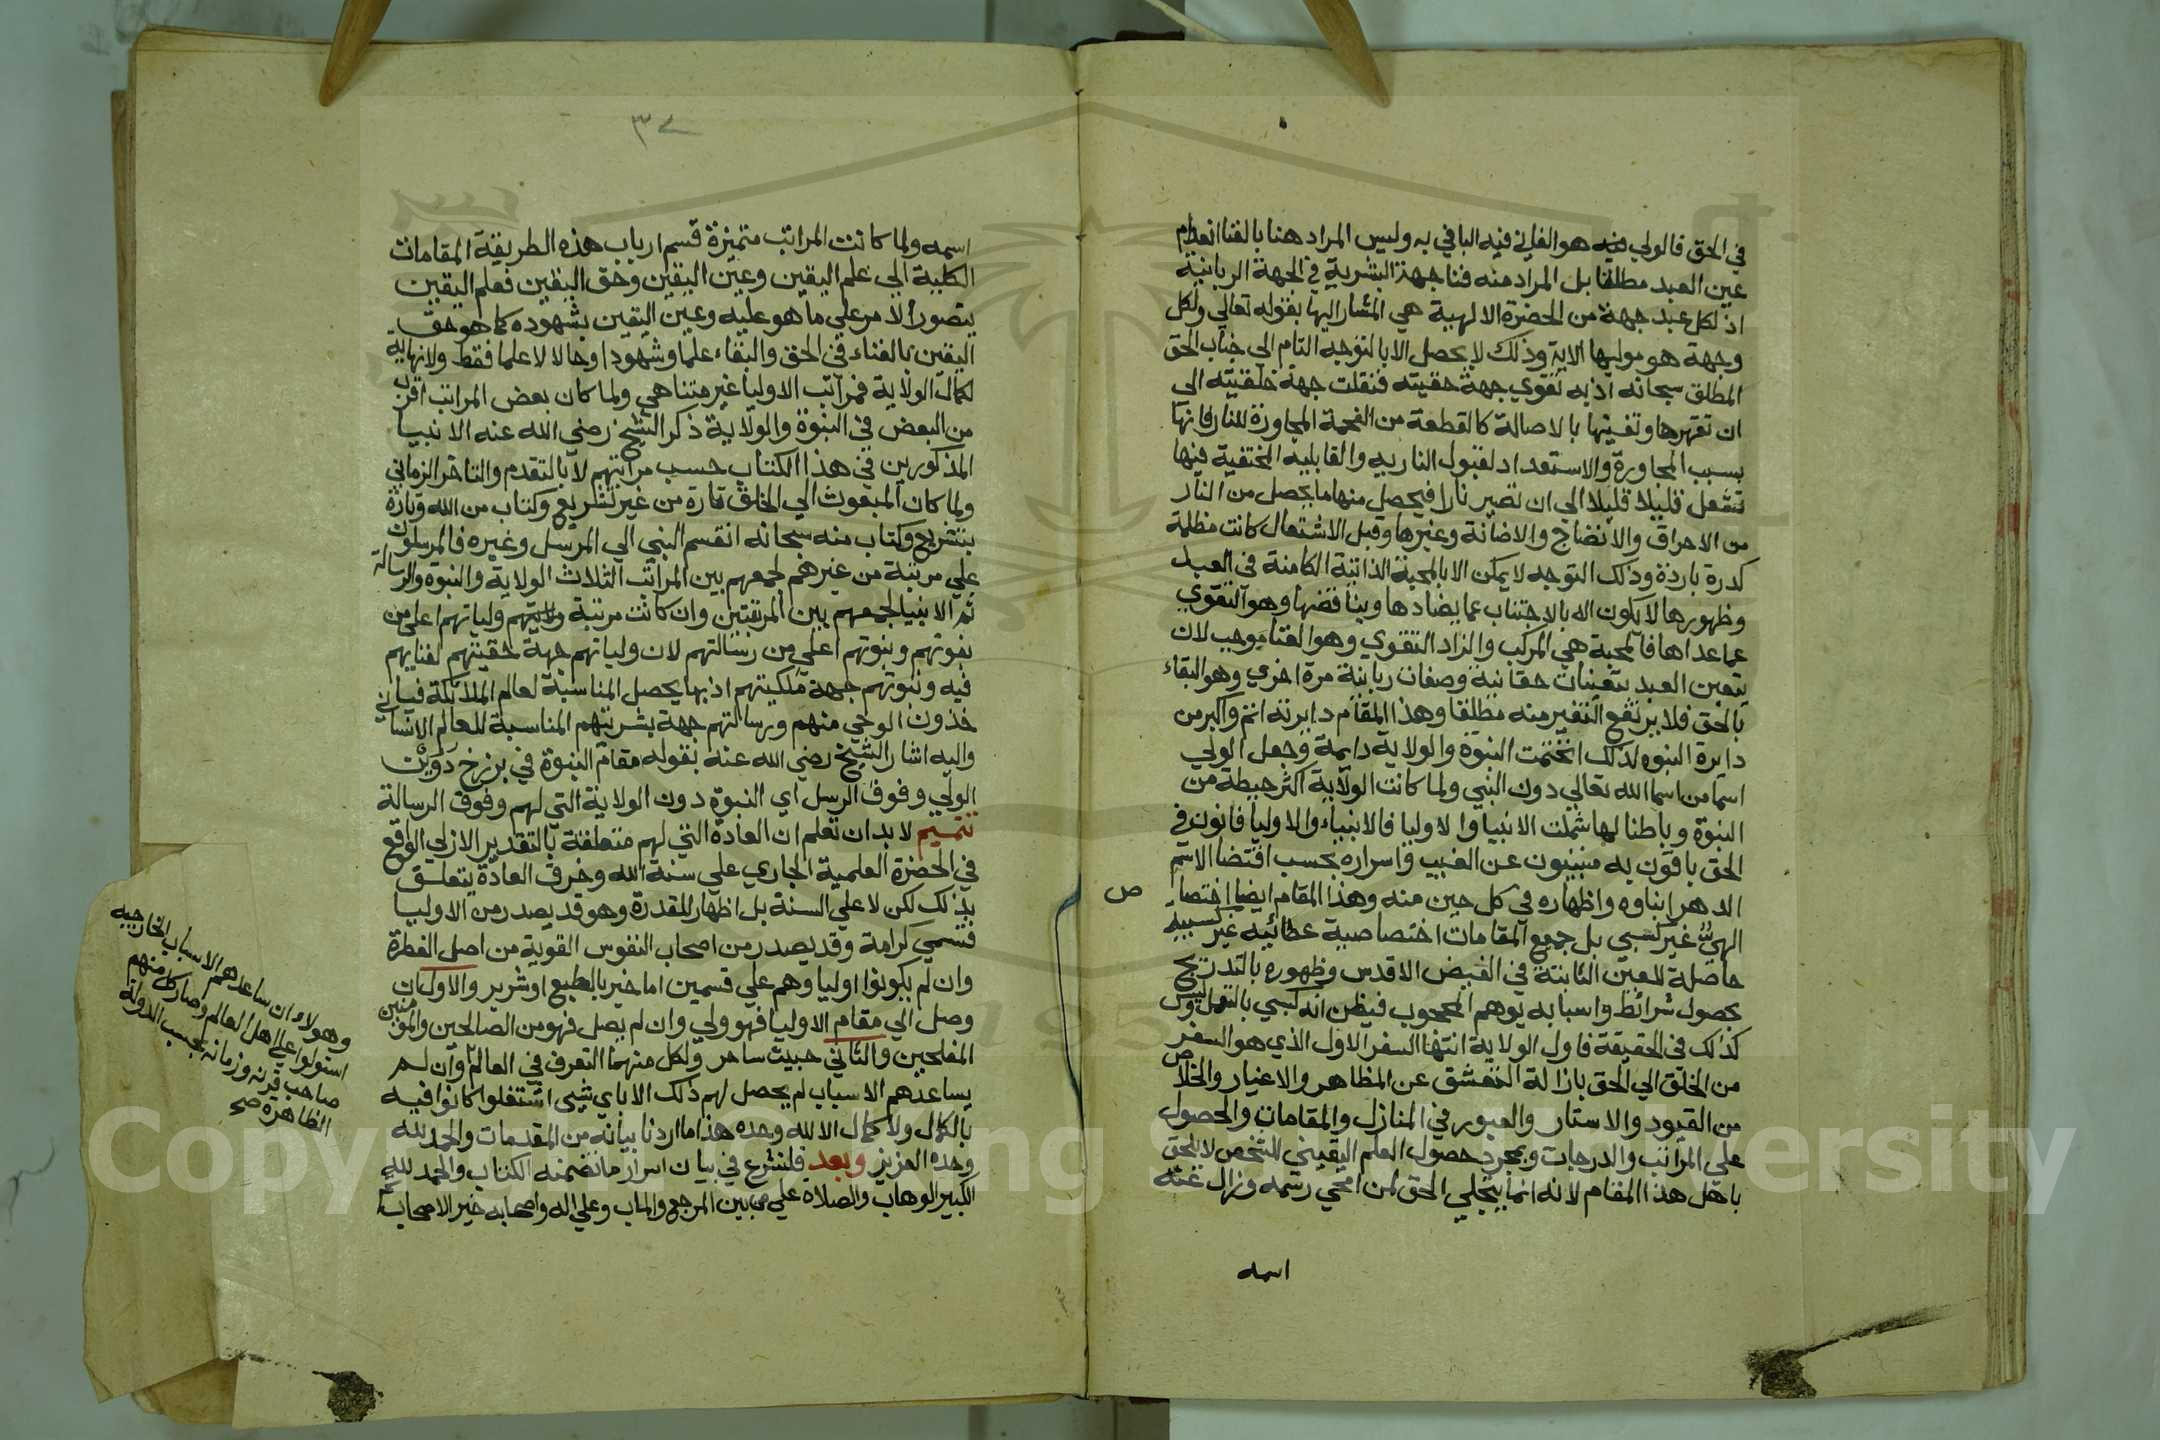 في الحق فالولي فيه هو الفاني فيه الباقي به وليس المراد هنا بالفنا انعدام
عين العبد مطلقا بل المراد منه فنا جهة البشرية في الجهة الربانية
اذ لكل عبد جهة من الحضرة الالهية هي المشار اليها بقوله تعالي ولكل
وجهة هو موليها الاية وذلك لا يحصل الا بالتوجه التام الى جناب الحق
المطلق سبحانه اذ به تقوي جهة حقيته فتقلت جهة خلقيته الى
ان تقهرها وتفنيها بالاصالة كالقطعة من الفحمة المجاورة للنار فانها
بسبب المجاورة والاستعداد لقبول النارية والقابلية المختفية فيها
تشعل قليلا قليلا الي ان تصير نارا فيحصل منها ما يحصل من النار
من الاحراق والانضاج والاضائة وغيرها وقبل الاشتعال كانت مظلمة
كدرة باردة وذلك التوجه لا يمكن الا بالمحبة الذاتية الكامنة في العبد
وظهورها لا يكون اله بالاجتناب عما يضادها ويناقضها وهو التقوي
عما عداها فالمحبة هي المركب والزاد التقوي وهو الفنا موجب لان
يتعين العبد بتعينات حقانية وصفات ربانية مرة اخري وهو البقاء
بالحق فلا يرتفع التغير منه مطلقا وهذا المقام دايرته اتم واكبر من
دايرة النبوه لذلك انختمت النبوة والولاية دايمة وجعل الولي
اسما من اسما الله تعالي دون النبي ولما كانت الولاية اكثر حيطة من
النبوة وباطنا لها شملت الانبيا والاوليا فالانبياء والاوليا فانون في
الحق باقون به منبئون عن الغيب واسراره بحسب اقتضا الاسم
الدهر ابناوه واظهاره في كل حين منه وهذا المقام ايضا اختصا
ص
الهي غير كسبي بل جميع المقامات اختصاصية عطائيه غير كسبية
حاصلة للعين الثابتة في الفيض الاقدس وظهوره بالتدريج
بحصول شرائط واسبابه يوهم المحجوب فيظن انه كسبي بالتعمل وليس
كذلك في الحقيقة فاول الولاية انتها السفر الاول الذي هو السفر
من الخلق الي الحق بازالة التعشق عن المظاهر والاغيار والخلاص
من القيود والاستار والعبور في المنازل والمقامات والحصول
علي المراتب والدرجات وبمجرد حصول العلم اليقيني للشخص لا يلحق
باهل هذا المقام لانه انما يتجلي الحق لمن امحي رسمه وزال عنه
اسمه
٣٤
اسمه ولما كانت المراتب متميزة قسم ارباب هذه الطريقة المقامات
الكلية الي علم اليقين وعين اليقين وحق اليقين فعلم اليقين
يتصور الامر علي ما هو عليه وعين اليقين بشهوده كما هو حق
اليقين بالفناء في الحق والبقاء علما وشهودا وحالا لا علما فقط ولا نهاية
لكمال الولاية فمراتب الاوليا غير متناهي ولما كان بعض المراتب اقرب
من البعض في النبوة والولاية ذكر الشيخ رضي الله عنه الانبيا
المذكورين في هذا الكتاب حسب مراتبهم لا بالتقدم والتاخر الزماني
ولما كان المبعوث الي الخلق تارة من غير تشريع وكتاب من الله وتارة
بتشريع وكتاب منه سبحانه انقسم النبي الي المرسل وغيره فالمرسلون
علي مرتبة من غيرهم لجمعهم بين المراتب الثلاث الولاية والنبوه والرسالة
ثم الانبيا لجمعهم بين المرتبتين وان كانت مرتبة ولايتهم ولياتهم اعلي من
نبوتهم ونبوتهم اعلي من رسالتهم لان ولياتهم جهة حقيتهم لفنايهم
فيه ونبوتهم جهة ملكيتهم اذ بها يحصل المناسبة لعالم الملائكة فيا
خذون الوحي منهم ورسالتهم جهة بشريتهم المناسبة للعالم الانساني
واليه اشار الشيخ رضي الله عنه بقوله مقام النبوة في برزخ دوين
الولي وفوق الرسل اي النبوة دون الولاية التي لهم وفوق الرسالة
تتميم لا بد ان تعلم ان العادة التي لهم متعلقة بالتقدير الازلي الواقع
في الحضرة العلمية الجاري علي سنة الله وخرق العادة يتعلق
بذلك لكن لا علي السنة بل اظهار للقدرة وهو قد يصدر من الاوليا
فتسمي كرامة وقد يصدر من اصحاب النفوس القوية من اصل الفطرة
وان لم يكونوا اوليا وهم علي قسمين اما خير بالطبع او شرير والاول ان
وصل الي مقام الاوليا فهو ولي وان لم يصل فهو من الصالحين والمؤمنين
المفلحين والثاني خبيث ساحر ولكل منهما التعرف في العالم وان لم
يساعدهم الاسباب لم يحصل لهم ذلك الا باي شيء اشتغلوا كانوا فيه
بالكمال ولا كمال الا لله وحده هذا ما اردنا بيانه من المقدمات والحمد لله
وحده العزيز وبعد فلنشرع في بيان اسرار ما تضمنه الكتاب والحمد لله
الكبير الوهاب والصلاة علي من بين المرجع والماب وعلي اله واصحابه خير الاصحاب
وهولاء ان ساعدهم الاسباب الخارجيه
استولوا علي اهل العالم وصار كل منهم
صاحب قرنه وزمانه بحسب الدولة
الظاهرة صح
Copyright © King Saud University